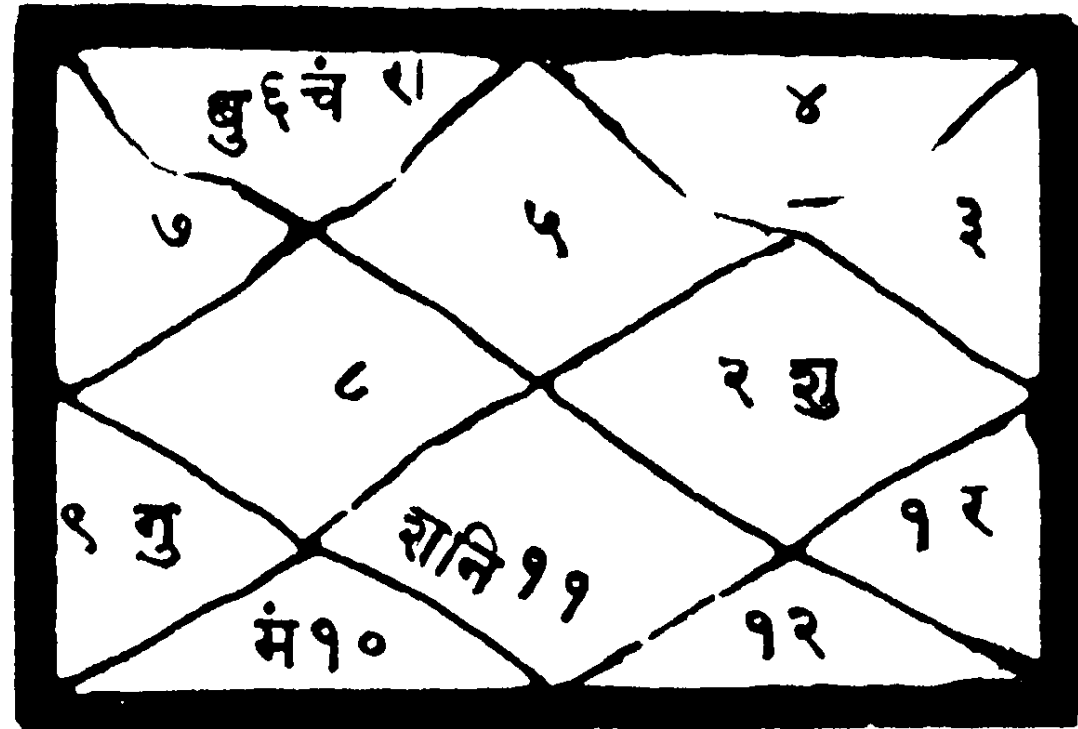 बु ६ चं रा
४
७
५
३
८
२ शु
९ गु
१ र
शनि ११
मं १०
१२